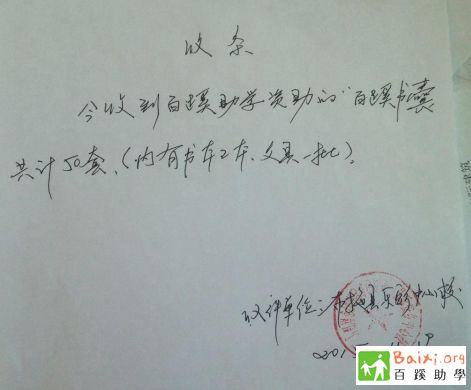 收条
今收到百蹊助学资助的“百蹊书囊
共计50套,(内有书本2本、文具一批)。
收件单位:
Baixi.org
百蹊助學